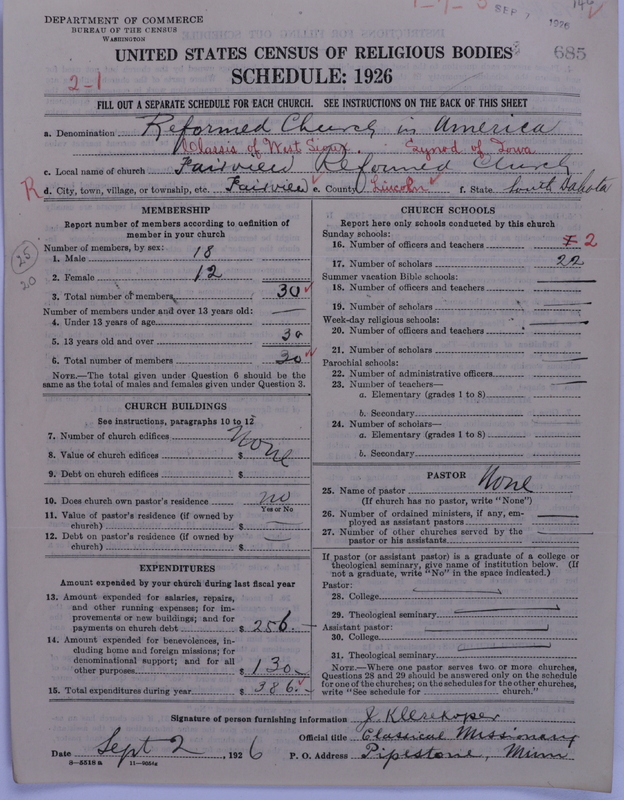 DEPARTMENT OF COMMERCE
BUREAU OF THE CENSUS
WASHINGTON
SEP 7 1926
685
UNITED STATES CENSUS OF RELIGIOUS BODIES
SCHEDULE: 1926
2-1
FILL OUT A SEPARATE SCHEDULE FOR EACH CHURCH. SEE INSTRUCTIONS ON THE BACK OF THIS SHEET
a. Denomination Reformed Church in America
Classis of West Sioux. Synod of Iowa
c. Local name of church Fairview Reformed Church
R d. City, town, village, or township, etc. Fairview e. County Lincoln f. State South Dakota
MEMBERSHIP
Report number of members according to definition of
member in your church
25
20
Number of members, by sex:
1. Male 18
2. Female 12
3. Total number of members 30
Number of members under and over 13 years old:
4. Under 13 years of age —
5. 13 years old and over 30
6. Total number of members 30
NOTE.—The total given under Question 6 should be the
same as the total of males and females given under Question 3.
CHURCH BUILDINGS
See instructions, paragraphs 10 to 12
7. Number of church edifices None
8. Value of church edifices $
9. Debt on church edifices $
10. Does church own pastor's residence no
Yes or No
11. Value of pastor's residence (if owned by
church) $ —
12. Debt on pastor's residence (if owned by
church) $ —
EXPENDITURES
Amount expended by your church during last fiscal year
13. Amount expended for salaries, repairs,
and other running expenses; for im-
provements or new buildings; and for
payments on church debt $ 256.—
14. Amount expended for benevolences, in-
cluding home and foreign missions; for
denominational support; and for all
other purposes $ 130—
15. Total expenditures during year $ 386.—
CHURCH SCHOOLS
Report here only schools conducted by this church
Sunday schools:
16. Number of officers and teachers 2
17. Number of scholars 22
Summer vacation Bible schools:
18. Number of officers and teachers —
19. Number of scholars —
Week-day religious schools:
20. Number of officers and teachers —
21. Number of scholars —
Parochial schools:
22. Number of administrative officers —
23. Number of teachers—
a. Elementary (grades 1 to 8) —
b. Secondary —
24. Number of scholars—
a. Elementary (grades 1 to 8) —
b. Secondary —
PASTOR
25. Name of pastor None
(If church has no pastor, write "None")
26. Number of ordained ministers, if any, em-
ployed as assistant pastors —
27. Number of other churches served by the
pastor or his assistants —
If pastor (or assistant pastor) is a graduate of a college or
theological seminary, give name of institution below. (If
not a graduate, write "No" in the space indicated.)
Pastor:
28. College —
29. Theological seminary —
Assistant pastor:
30. College —
31. Theological seminary —
NOTE.—Where one pastor serves two or more churches,
Questions 28 and 29 should be answered only on the schedule
for one of the churches; on the schedules for the other churches,
write "See schedule for church."
Signature of person furnishing information J. Klerekoper
Official title Classical Missionary
Date Sept 2, 1926 P. O. Address Pipestone, Minn
8—5518 a 11—9054a